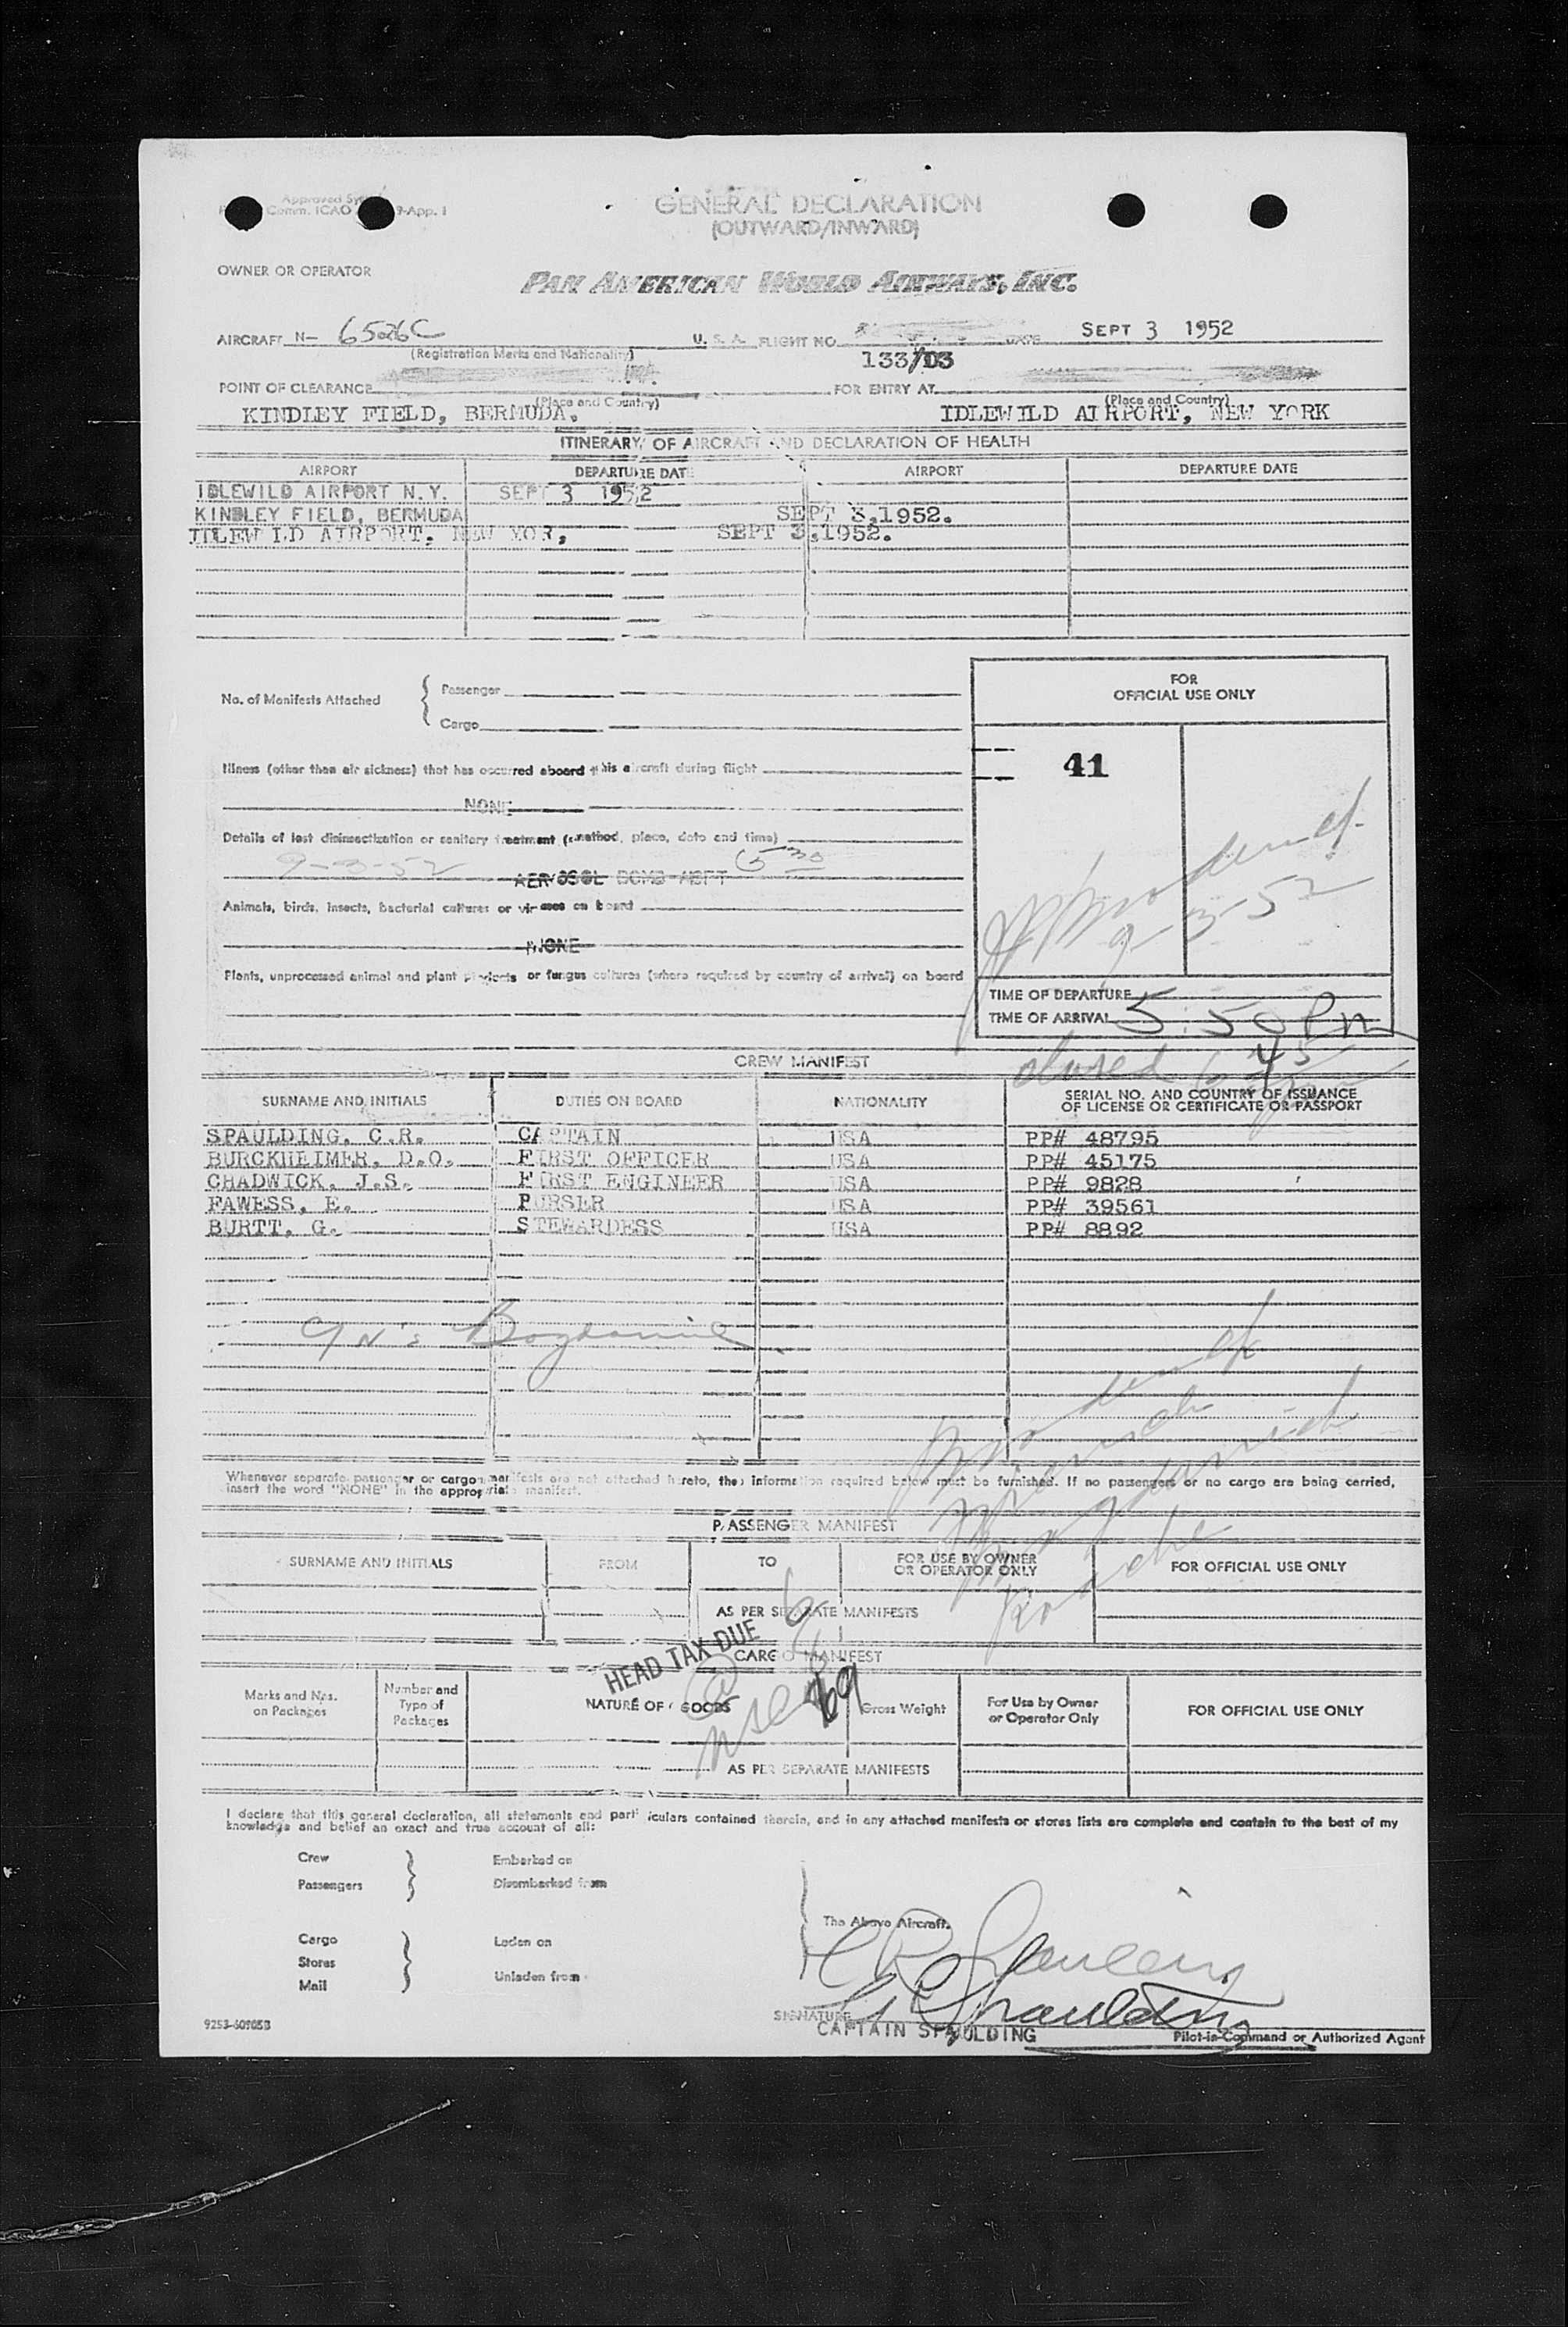 Approved
Comm. ICAO 9-App. 1
GENERAL DECLARATION
(OUTWARD/INWARD)
OWNER OR OPERATOR
PAN AMERICAN WORLD AIRWAYS, INC.
AIRCRAFT N- 6526C U. S. A. FLIGHT NO. DATE SEPT 3 1952
(Registration Marks and Nationality) 133/D3
POINT OF CLEARANCE FOR ENTRY AT
(Place and Country) (Place and Country)
KINDLEY FIELD, BERMUDA. IDLEWILD AIRPORT, NEW YORK
ITINERARY OF AIRCRAFT AND DECLARATION OF HEALTH
AIRPORT DEPARTURE DATE AIRPORT DEPARTURE DATE
IDLEWILD AIRPORT N.Y. SEPT 3 1952
KINDLEY FIELD, BERMUDA SEPT 3,1952.
IDLEWILD AIRPORT, NEW YOR, SEPT 3,1952.
No. of Manifests Attached { Passenger
Cargo
FOR
OFFICIAL USE ONLY
41
Illness (other than air sickness) that has occurred aboard this aircraft during flight
NONE
Details of last disinsectization or sanitary treatment (method, place, date and time)
9-3-52 AEROSOL BOMB 5 30
Animals, birds, insects, bacterial cultures or viruses on board
NONE
9-3-52
Plants, unprocessed animal and plant products or fungus cultures (where required by country of arrival) on board
TIME OF DEPARTURE
TIME OF ARRIVAL 5:50 Pm
CREW MANIFEST
6 45
SURNAME AND INITIALS DUTIES ON BOARD NATIONALITY SERIAL NO. AND COUNTRY OF ISSUANCE
OF LICENSE OR CERTIFICATE OR PASSPORT
SPAULDING, C.R. CAPTAIN USA PP# 48795
BURCKHEIMER, D.O. FIRST OFFICER USA PP# 45175
CHADWICK, J.S. FIRST ENGINEER USA PP# 9828
FAWESS, E. PURSER USA PP# 39561
BURTT, G. STEWARDESS USA PP# 8892
Whenever separate passenger or cargo manifests are not attached hereto, the information required below must be furnished. If no passengers or no cargo are being carried,
insert the word "NONE" in the appropriate manifest.
PASSENGER MANIFEST
SURNAME AND INITIALS FROM TO FOR USE BY OWNER
OR OPERATOR ONLY FOR OFFICIAL USE ONLY
AS PER SEPARATE MANIFESTS
HEAD TAX DUE
CARGO MANIFEST
69
Marks and Nos.
on Packages Number and
Type of
Packages NATURE OF GOODS Gross Weight For Use by Owner
or Operator Only FOR OFFICIAL USE ONLY
AS PER SEPARATE MANIFESTS
I declare that this general declaration, all statements and particulars contained therein, and in any attached manifests or stores lists are complete and contain to the best of my
knowledge and belief an exact and true account of all:
Crew } Embarked on
Passengers Disembarked from
The Above Aircraft.
Cargo } Laden on
Stores
Mail Unladen from
C R Spaulding
C R Spaulding
SIGNATURE
CAPTAIN SPAULDING Pilot-in-Command or Authorized Agent
9253-60905B